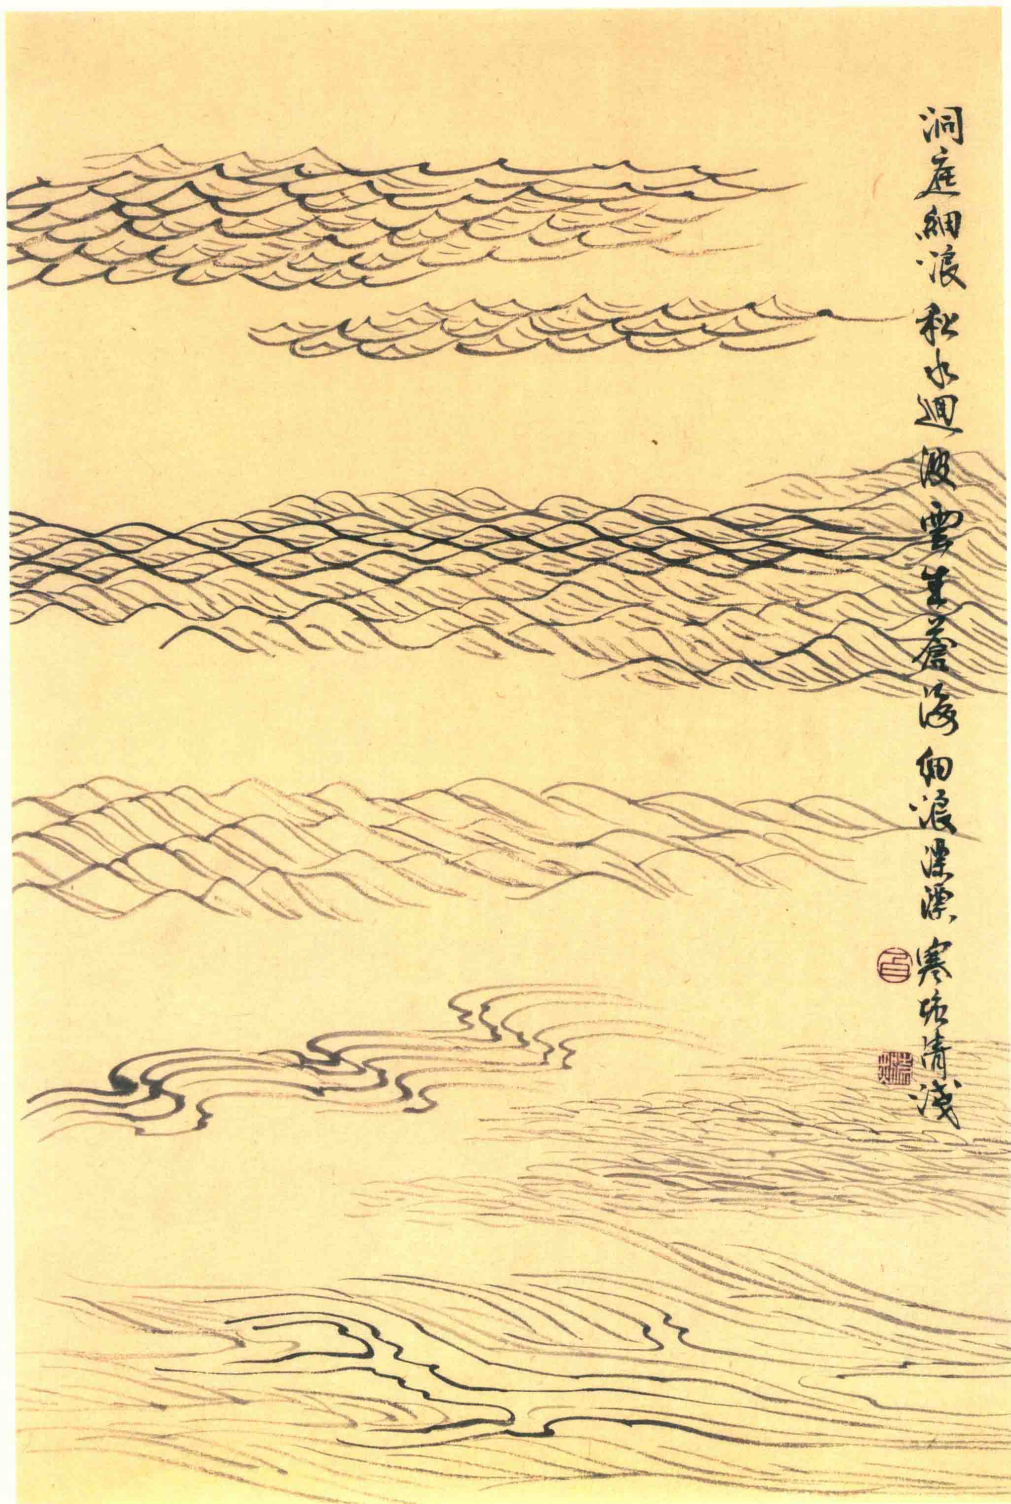 洞庭細浪秋水迴波雲生蒼海細浪漂漂寒塘清淺